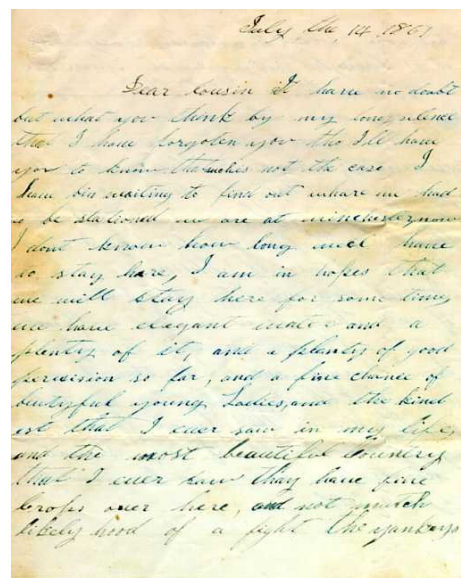 July the 14 1861
Dear Cousin I have no doubt
but what you think by my long silence
that I have forgoten you tho Ill have
you to know that suches not the case I
have bin waiting to find out whare we had
to be stationed we are at winchester now
I dont know how long weel have
to stay here, I am in hopes that
we will stay here for some time,
we have elegant water and a
plenty of it, and a plenty of good
pervision so far, and a fine chance of
butyful young Ladies, and the kind
est that I ever saw in my life,
and the most beautiful Country
that I ever saw thay have fine
Crops over here, and not much
likely hood of a fight the yankeys